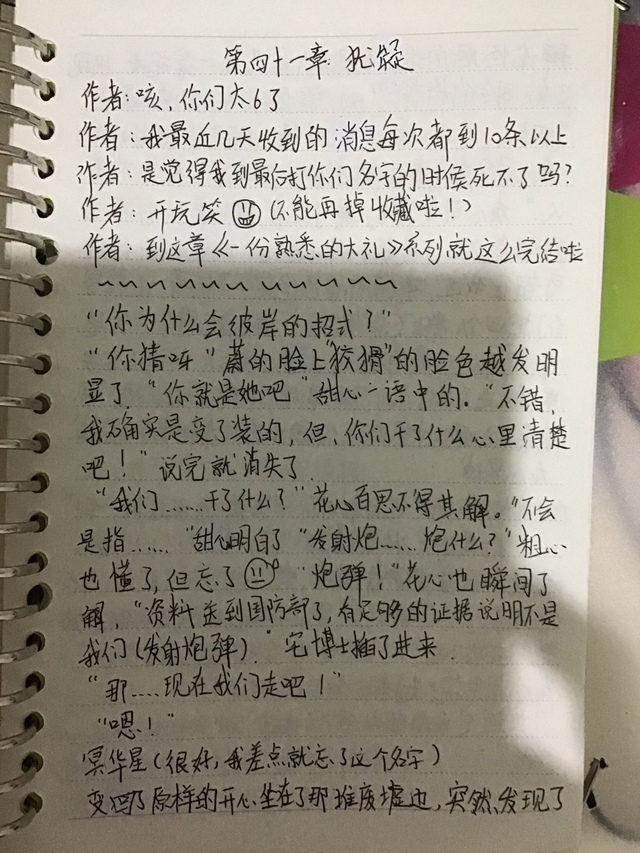 第四十一章 犹疑
作者：咳，你们太6了
作者：我最近几天收到的消息每次都到10条以上
作者：是觉得我到最后打你们名字的时侯死不了吗？
作者：开玩笑（不能再掉收藏啦！）
作者：到这章《一份熟悉的大礼》系列就这么完结啦
~~~~~~~~~~~
“你为什么会彼岸的招式？”
“你猜呀”蔚的脸上“狡猾”的脸色越发明
显了．“你就是她吧”甜心一语中的。“不错，
我确实是变了装的，但，你们干了什么心里清楚
吧！”说完就消失了．
“我们……干了什么？”花心百思不得其解。“不会
是指……”甜心明白了“发射炮……炮什么？”粗心
也懂了，但忘了 “炮弹！”花心也瞬间了
解，“资料送到国防部了，有足够的证据说明不是
我们（发射炮弹）．”宅博士插了进来．
“那……现在我们走吧！”
“嗯！”
冥华星（很好，我差点就忘了这个名字）
变回了原样的开心坐在了那堆废墟边，突然，发现了